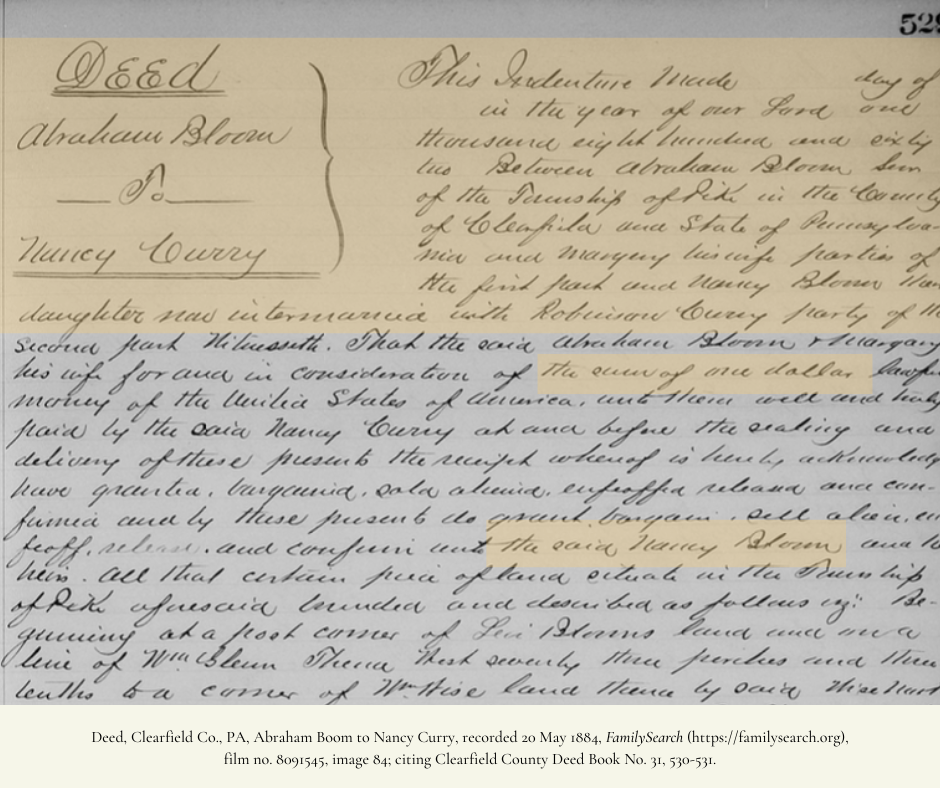 529
DEED
Abraham Bloom
To
Nancy Curry
This Indenture Made day of
in the year of our Lord one
thousand eight hundred and sixty
two Between Abraham Bloom Senr
of the Township of Pike in the County
of Clearfield and State of Pennsylva-
nia and Margery his wife parties of
the first part and Nancy Bloom
daughter now intermarried with Robinson Curry party of the
second part Witnesseth. That the said Abraham Bloom & Margary
his wife for and in consideration of the sum of one dollar lawful
money of the United States of America, unto them well and truly
paid by the said Nancy Curry at and before the sealing and
delivery of these presents the receipt whereof is hereby acknowledg
have granted, bargained, sold aliened, enfeoffed released and con-
firmed and by these presents do grant, bargain, sell alien, en
feoff, release, and confirm unto the said Nancy Bloom and to
heirs. All that certain piece of land situate in the Township
of Pike aforesaid bounded and described as follows viz: Be-
ginning at a post corner of Levi Blooms land and on a
line of Wm Bloom Thence West seventy three perches and three
tenths to a corner of Wm Wise land thence by said Wise North
Deed, Clearfield Co., PA, Abraham Boom to Nancy Curry, recorded 20 May 1884, FamilySearch (https://familysearch.org),
film no. 8091545, image 84; citing Clearfield County Deed Book No. 31, 530-531.